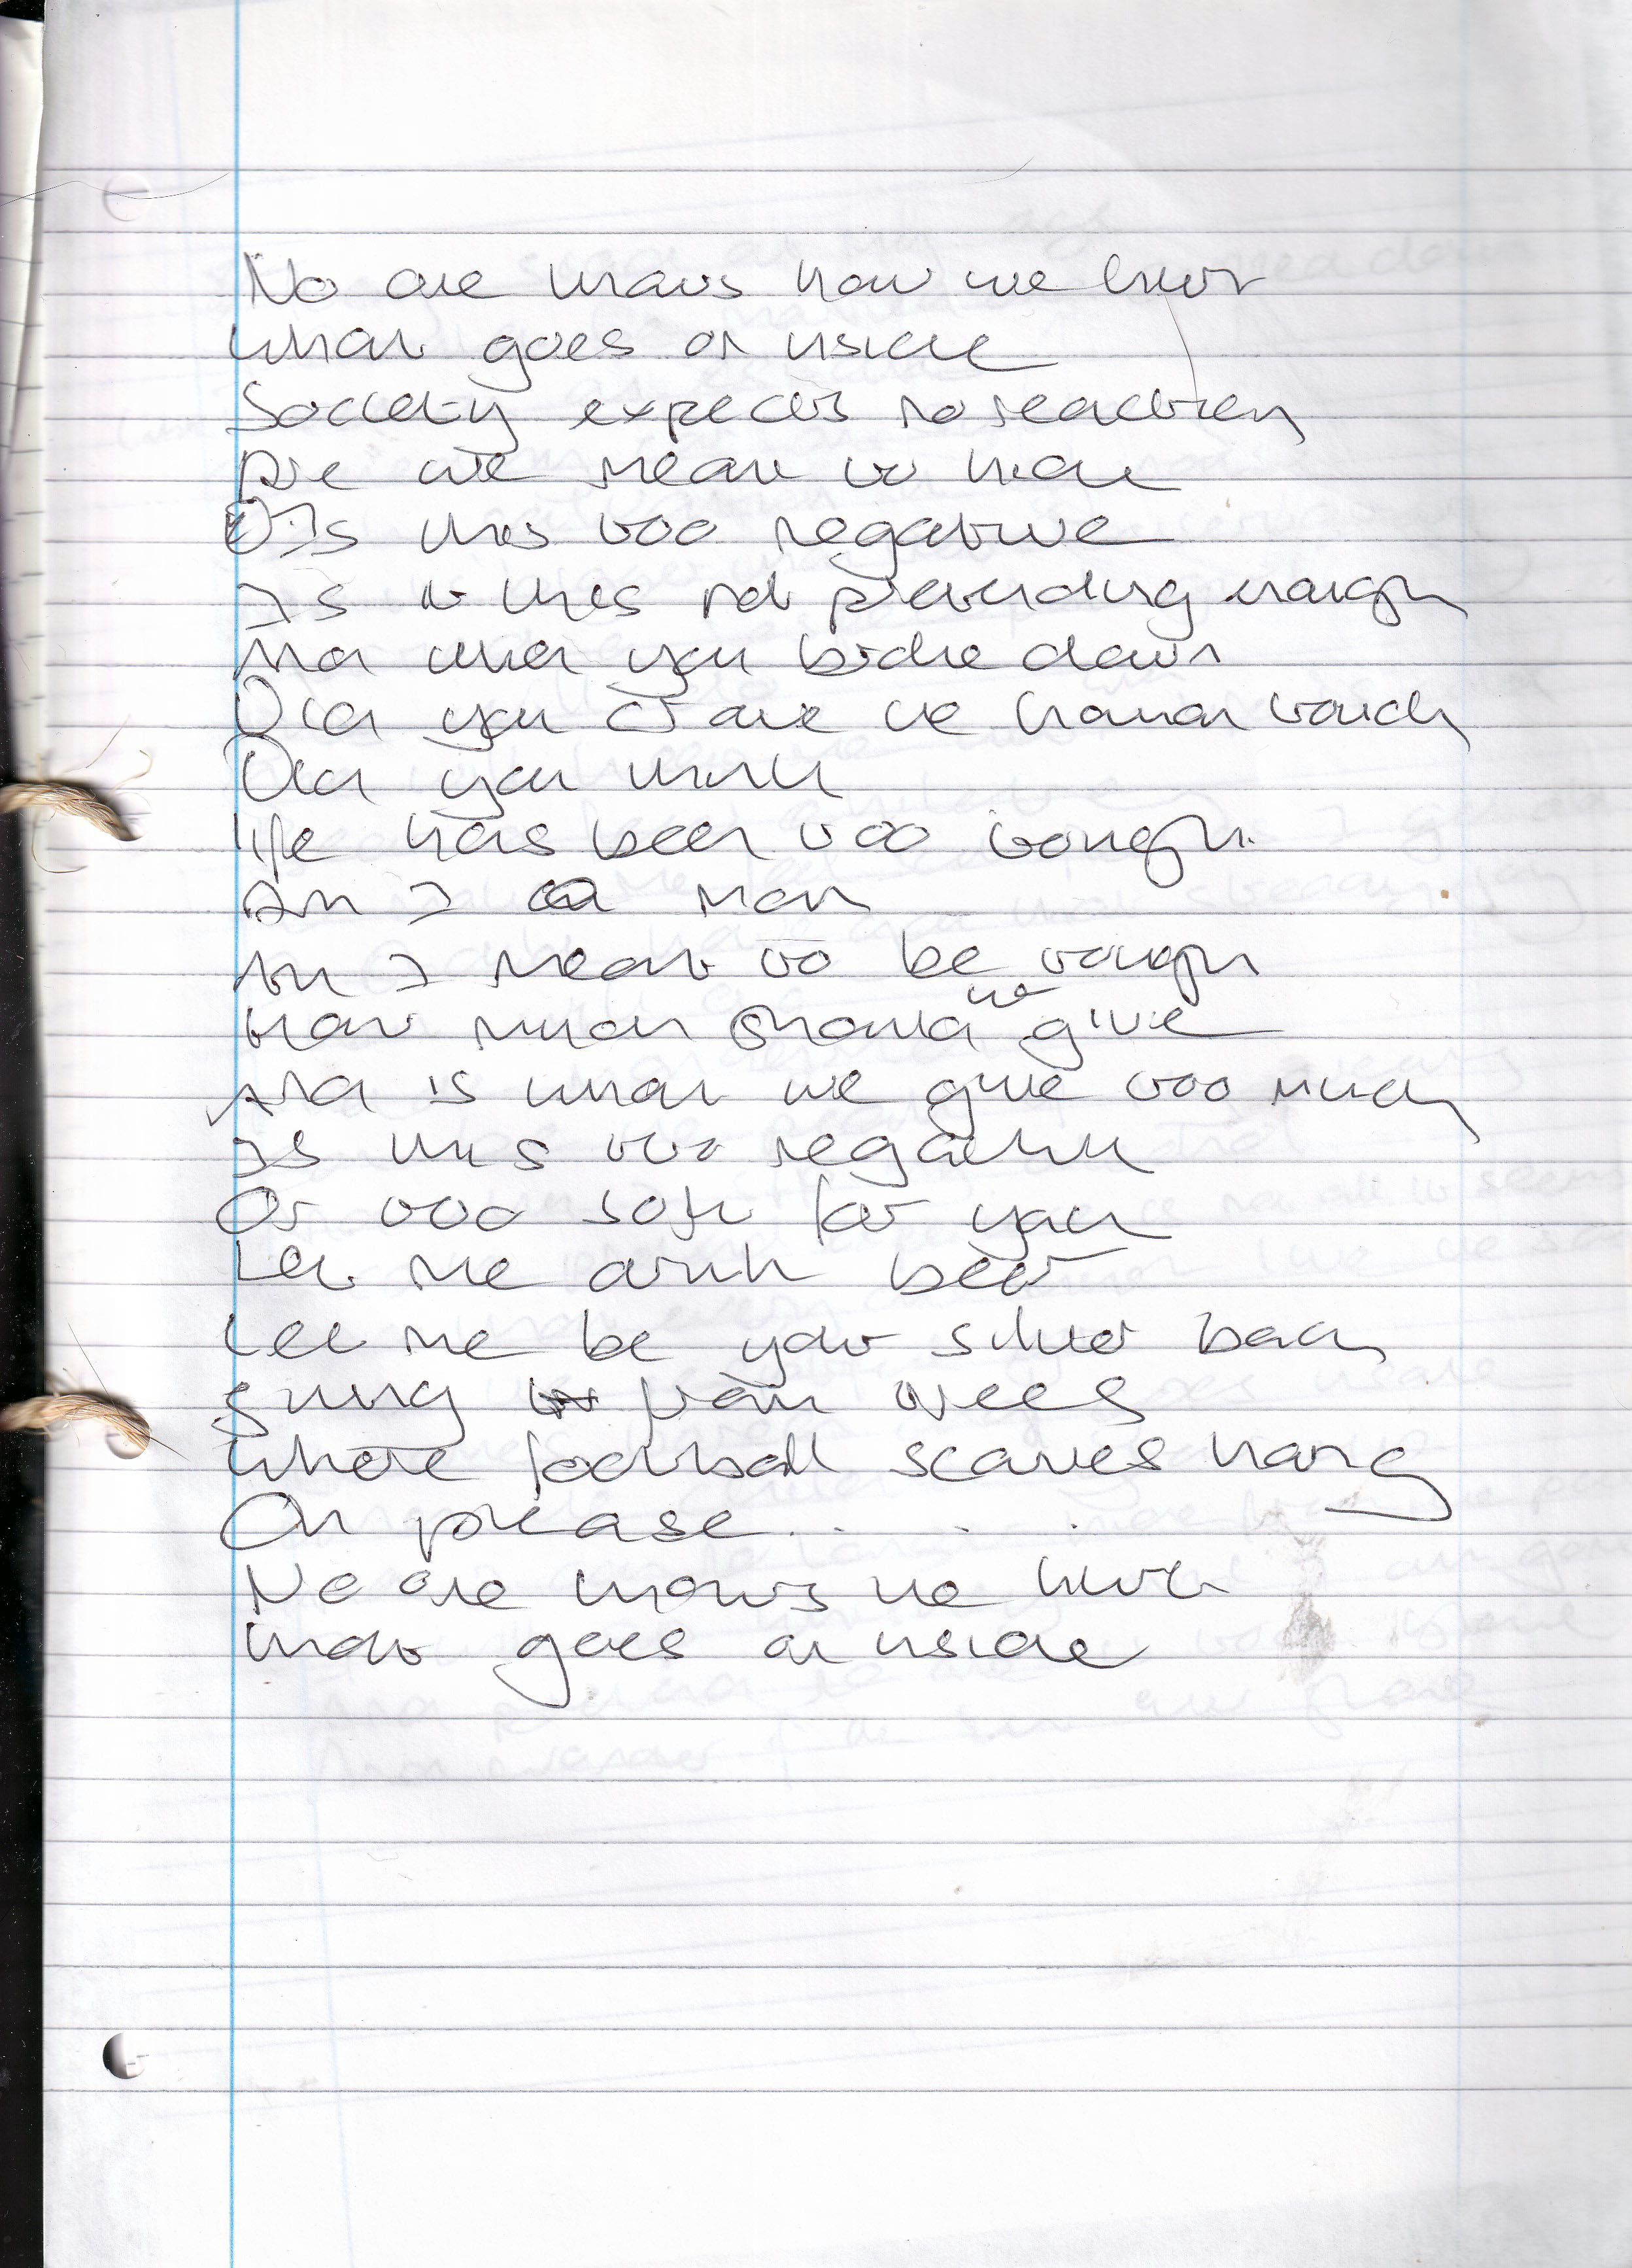 No one knows how we hurt
What goes on inside
Society expects no reaction
Are we meant to hide
Is this too negative
Is it this not pretending enough
And when you broke down
Did you crave the human touch
Did you think
life has been too tough
Am I a man
Am I meant to be tough
How much should we give
And is what we give too much
Is this too negative
Or too soft for you
Let me drink beer
Let me be your silver back
swing from trees
Where football scarves hang
Oh please . . . .
No one knows the hurt
What goes on inside